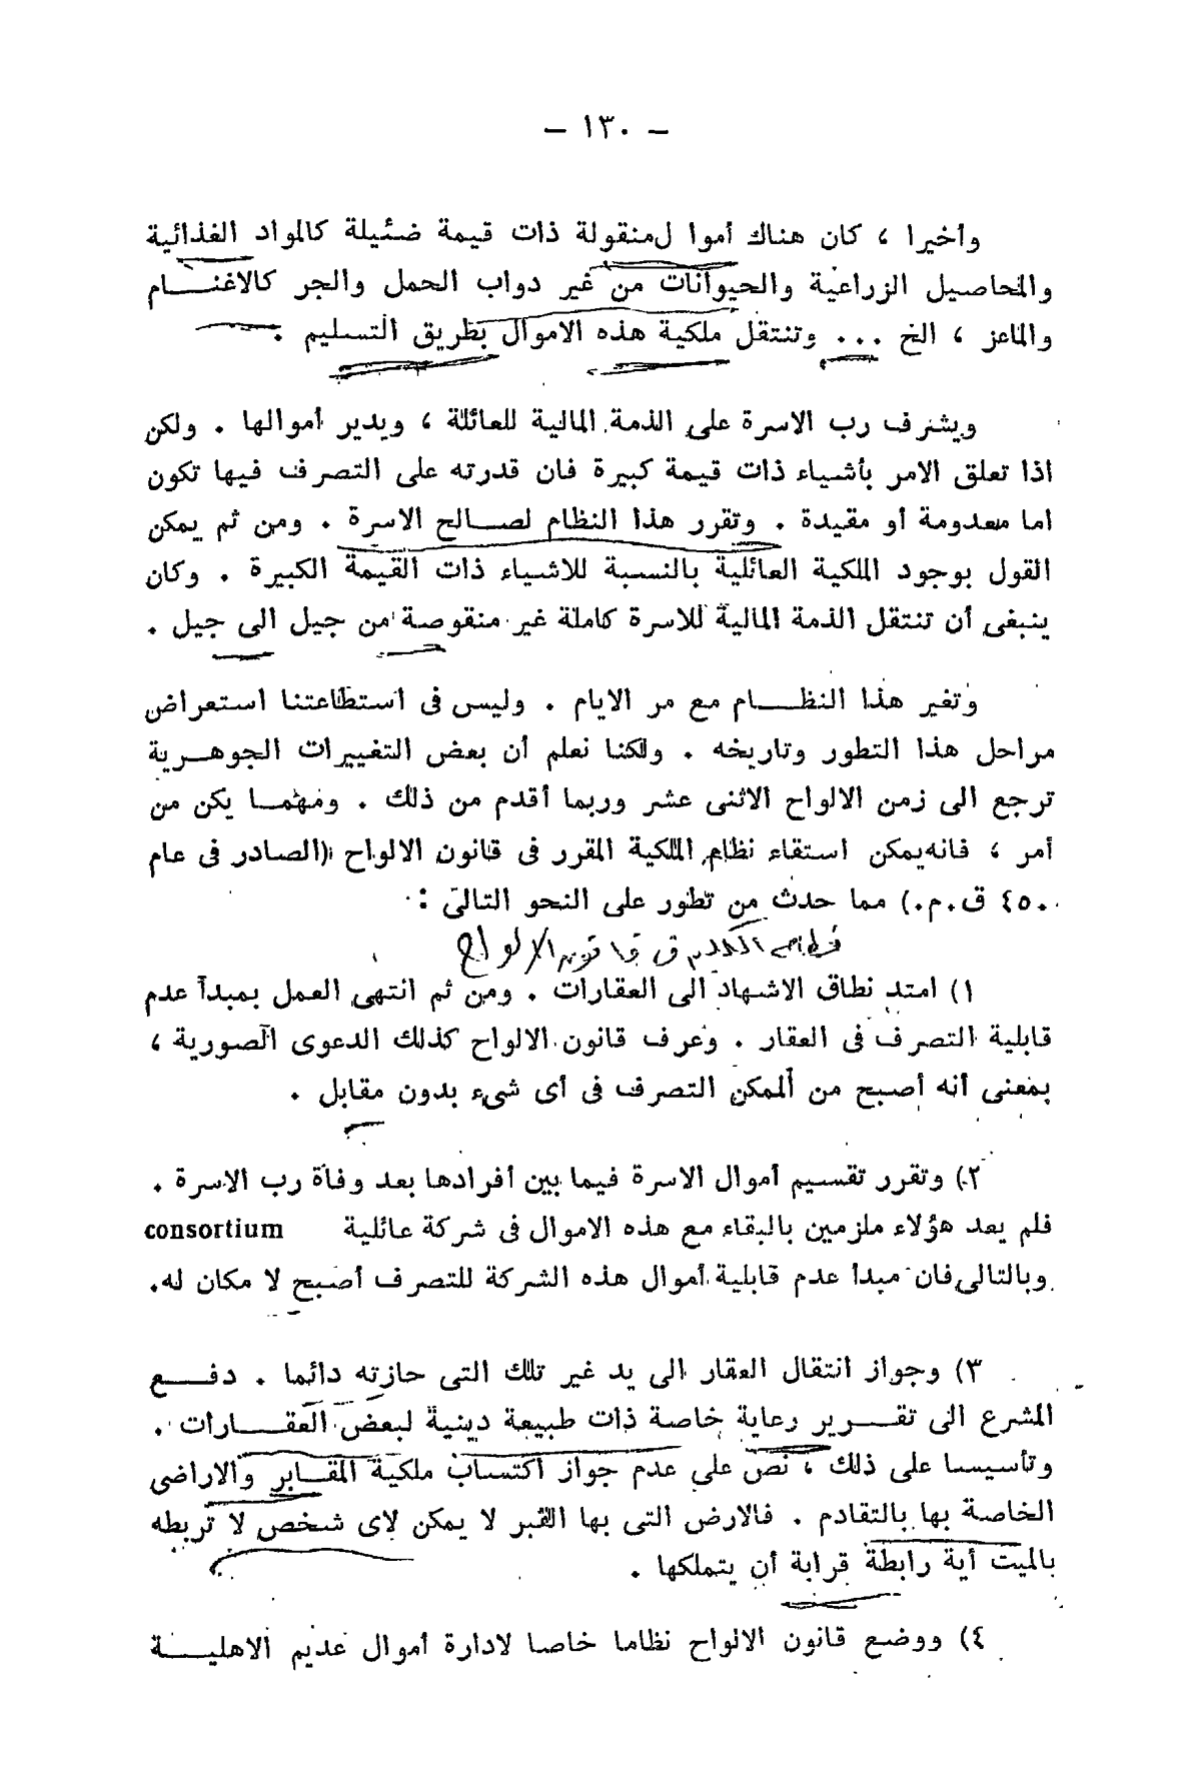 — ١٣٠ —
وأخيرا ، كان هناك أموا ل منقولة ذات قيمة ضئيلة كالمواد الغذائية
والمحاصيل الزراعية والحيوانات من غير دواب الحمل والجر كالاغنام
والماعز ، الخ ... وتنتقل ملكية هذه الاموال بطريق التسليم .
ويشرف رب الاسرة على الذمة المالية للعائلة ، ويدير أموالها . ولكن
اذا تعلق الامر بأشياء ذات قيمة كبيرة فان قدرته على التصرف فيها تكون
اما معدومة أو مقيدة . وتقرر هذا النظام لصالح الاسرة . ومن ثم يمكن
القول بوجود الملكية العائلية بالنسبة للاشياء ذات القيمة الكبيرة . وكان
ينبغى أن تنتقل الذمة المالية للاسرة كاملة غير منقوصة من جيل الى جيل .
وتغير هذا النظام مع مر الايام . وليس فى استطاعتنا استعراض
مراحل هذا التطور وتاريخه . ولكنا نعلم أن بعض التغييرات الجوهرية
ترجع الى زمن الالواح الاثنى عشر وربما أقدم من ذلك . ومهما يكن من
أمر ، فانه يمكن استقاء نظام الملكية المقرر فى قانون الالواح (الصادر فى عام
٤٥٠ ق.م.) مما حدث من تطور على النحو التالى :
الالواح
١) امتد نطاق الاشهاد الى العقارات . ومن ثم انتهى العمل بمبدأ عدم
قابلية التصرف فى العقار . وعرف قانون الالواح كذلك الدعوى الصورية ،
بمعنى أنه أصبح من الممكن التصرف فى أى شىء بدون مقابل .
٢) وتقرر تقسيم أموال الاسرة فيما بين أفرادها بعد وفاة رب الاسرة .
فلم يعد هؤلاء ملزمين بالبقاء مع هذه الاموال فى شركة عائلية consortium
وبالتالى فان مبدأ عدم قابلية أموال هذه الشركة للتصرف أصبح لا مكان له.
٣) وجواز انتقال العقار الى يد غير تلك التى حازته دائما . دفع
المشرع الى تقرير رعاية خاصة ذات طبيعة دينية لبعض العقارات .
وتأسيسا على ذلك ، نص على عدم جواز اكتساب ملكية المقابر والاراضى
الخاصة بها بالتقادم . فالارض التى بها القبر لا يمكن لاى شخص لا تربطه
بالميت أية رابطة قرابة أن يتملكها .
٤) ووضع قانون الالواح نظاما خاصا لادارة أموال عديم الاهلية